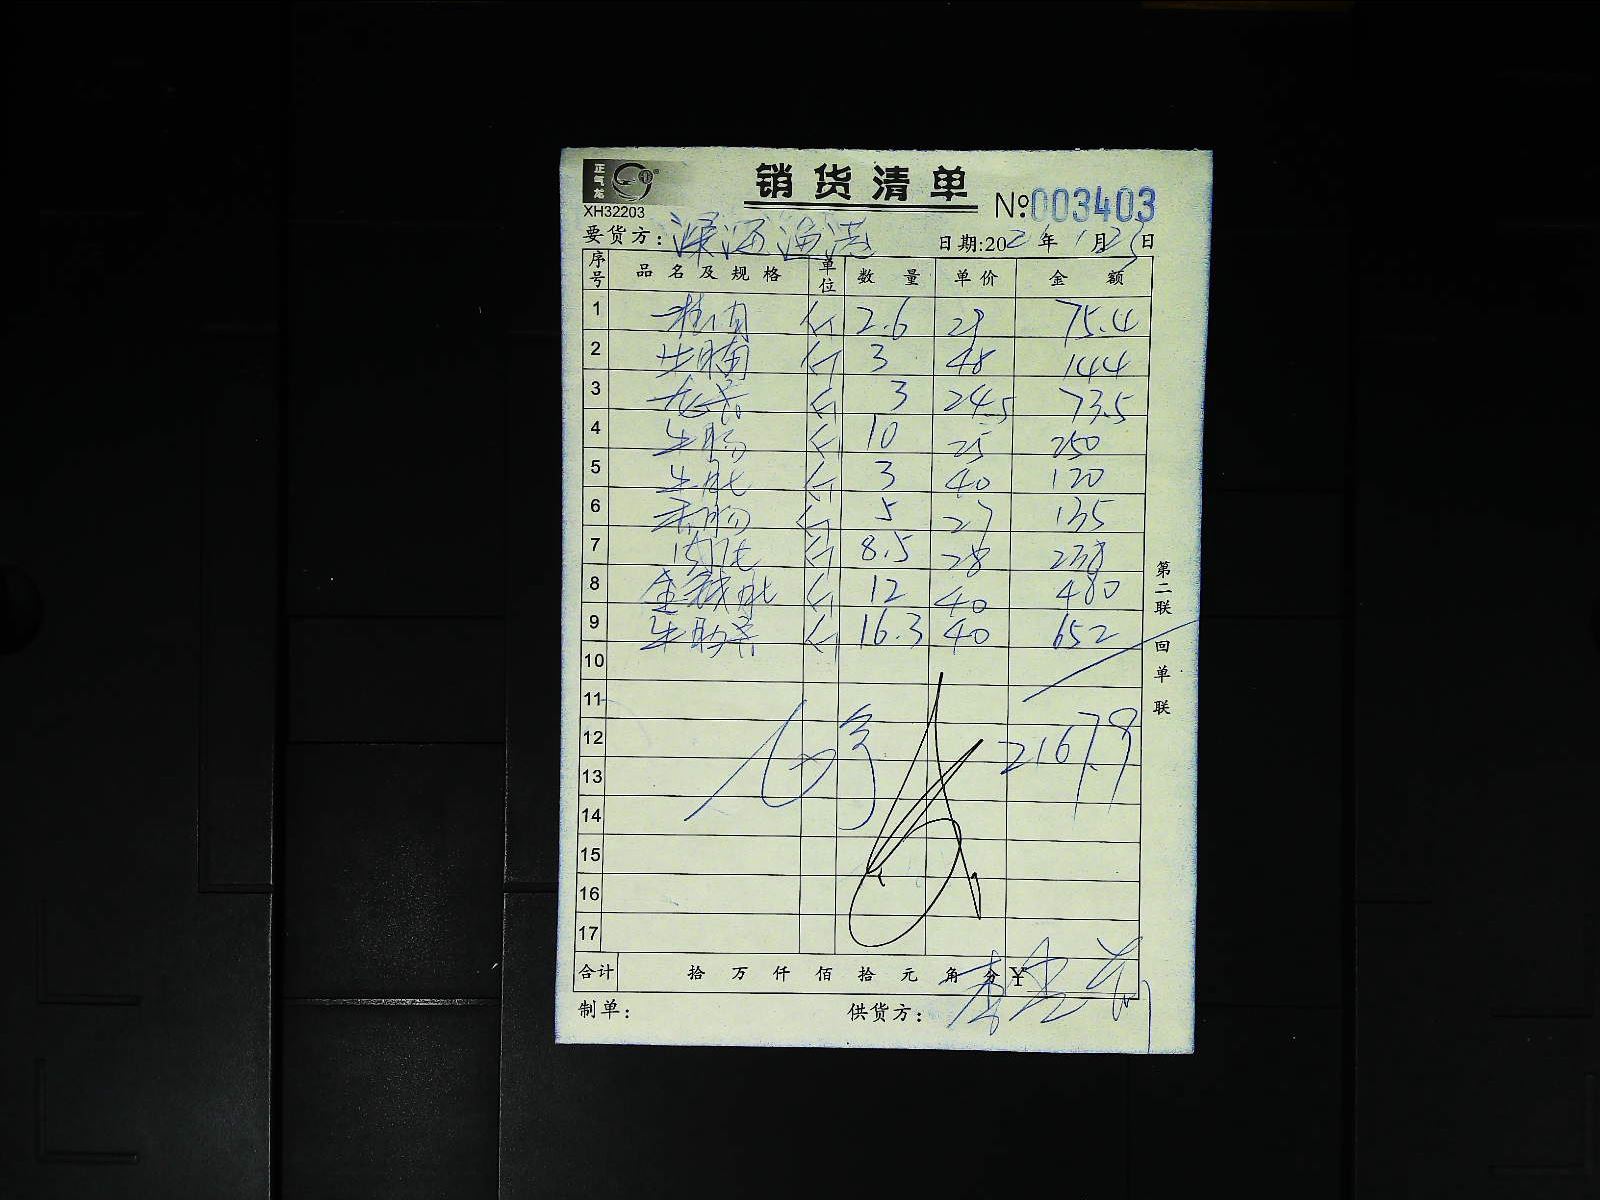 正气龙
销货清单
XH32203
№:003403
要货方: 深海渔港
日期:2021年1月23日
序号 品名及规格 单位 数量 单价 金额
1 斤 2.6 29 75.4
2 牛腩 斤 3 48 144
3 斤 3 24.5 73.5
4 牛肠 斤 10 25 250
5 牛肚 斤 3 40 120
6 斤 5 27 135
7 斤 8.5 28 238
8 金钱肚 斤 12 40 480
9 斤 16.3 40 652
10
11
12 2167.9
13
14
15
16
17
合计 拾 万 仟 佰 拾 元 角 分 ¥
制单: 供货方:
第二联 回单联